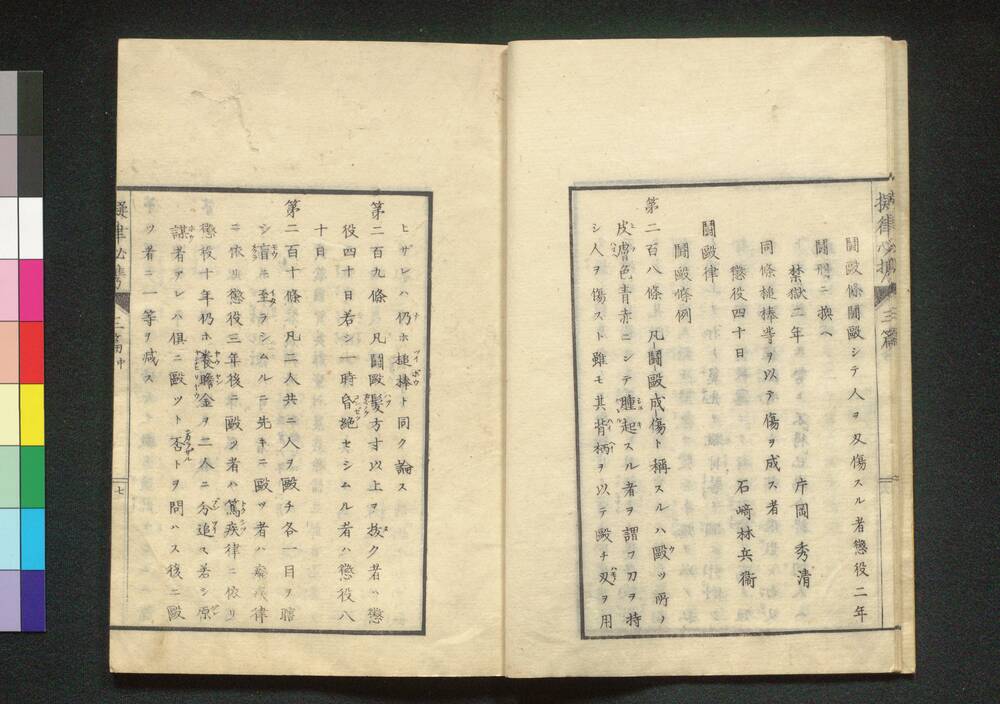 擬律必携 三篇
鬪毆條鬪毆シテ人ヲ刃傷スル者懲役二年
鬪刑ニ換ヘ
禁獄二年 片岡秀清
同條槌棒等ヲ以テ傷ヲ成ス者
懲役四十日 石﨑林兵衞
鬪毆律
鬪毆條例
第二百八條 凡鬪毆成傷ト稱スルハ毆ツ所ノ
皮膚色青赤ニシテ腫起スル者ヲ謂フ刀ヲ持
シ人ヲ傷スト雖モ其背柄ヲ以テ毆チ刃ヲ用
ヒザレハ仍ホ槌棒ト同ク論ス
第二百九條 凡鬪毆髮方寸以上ヲ拔ク者ハ懲
役四十日若シ一時昏絶セシムル者ハ懲役八
十日
第二百十條 凡二人共ニ人ヲ毆チ各一目ヲ瞎
シ盲ニ至ラシムルニ先キニ毆ツ者ハ癈疾律
ニ依リ懲役三年後ニ毆ツ者ハ篤疾律ニ依リ
懲役十年仍ホ養贍金ヲ二人ニ分追ス若シ原
謀者アレハ俱ニ毆ツト否トヲ問ハス後ニ毆
ツ者ニ一等ヲ減ス
擬律必携 三篇中
七